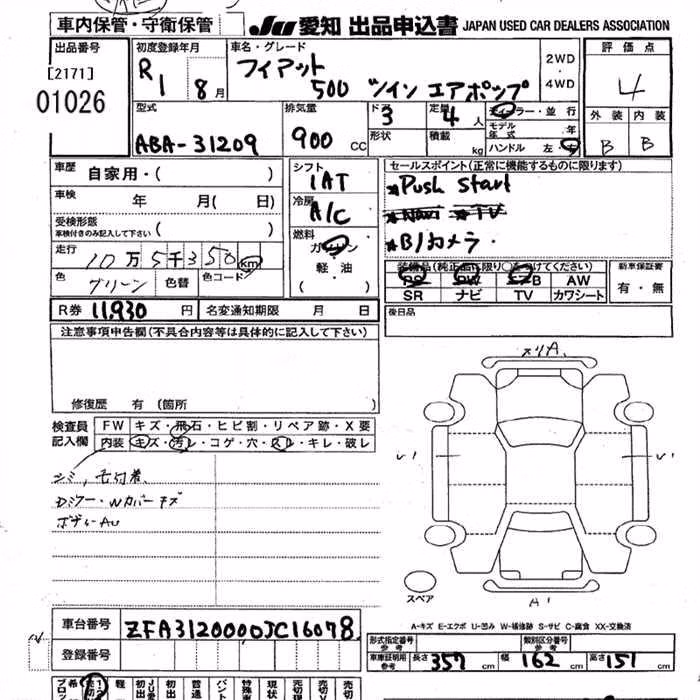 車内保管・守衛保管 JU 愛知 出品申込書 JAPAN USED CAR DEALERS ASSOCIATION
出品番号
[2171]
01026
初度登録年月
R1 8月
車名・グレード
フィアット
500 ツイン エアポップ
2WD
・
4WD
評価点
4
型式
ABA-31209
排気量
900 CC
ドア
3
形状
定員
4人
積載
kg
ディーラー・並行
モデル年式 年
ハンドル 左・右
外装 内装
B B
車歴 自家用・( )
車検 年 月( 日)
受検形態
車検付きのみ記入して下さい ( )
走行 10万5千350 km
色 グリーン 色替 色コード
シフト
1AT
冷房
A/C
燃料
ガソリン
・
軽・油
( )
セールスポイント(正常に機能するものに限ります)
★Push Start
★Navi ★TV
★B/カメラ・
装備品(純正品に限り○をつけてください)
PS PW エアB AW
SR ナビ TV カワシート
新車保証書
有・無
R券 11,930 円 名変通知期限 月 日
後日品
注意事項申告欄(不具合内容等は具体的に記入して下さい)
修復歴 有(箇所 )
検査員
記入欄
FW キズ・飛石・ヒビ割・リペア跡・X要
内装 キズ・汚レ・コゲ・穴・スレ・キレ・破レ
シミ、毛付着
Dミラー・Wカバーキズ
ボディーAU
メリA.
U1 U1
スペア
A1
A-キズ E-エクボ U-凹み W-補修跡 S-サビ C-腐食 XX-交換済
車台番号 ZFA3120000JC16078
登録番号
型式指定番号
参考
類別区分番号
参考
車庫証明用
参考
長さ 357 cm 幅 162 cm 高さ 151 cm